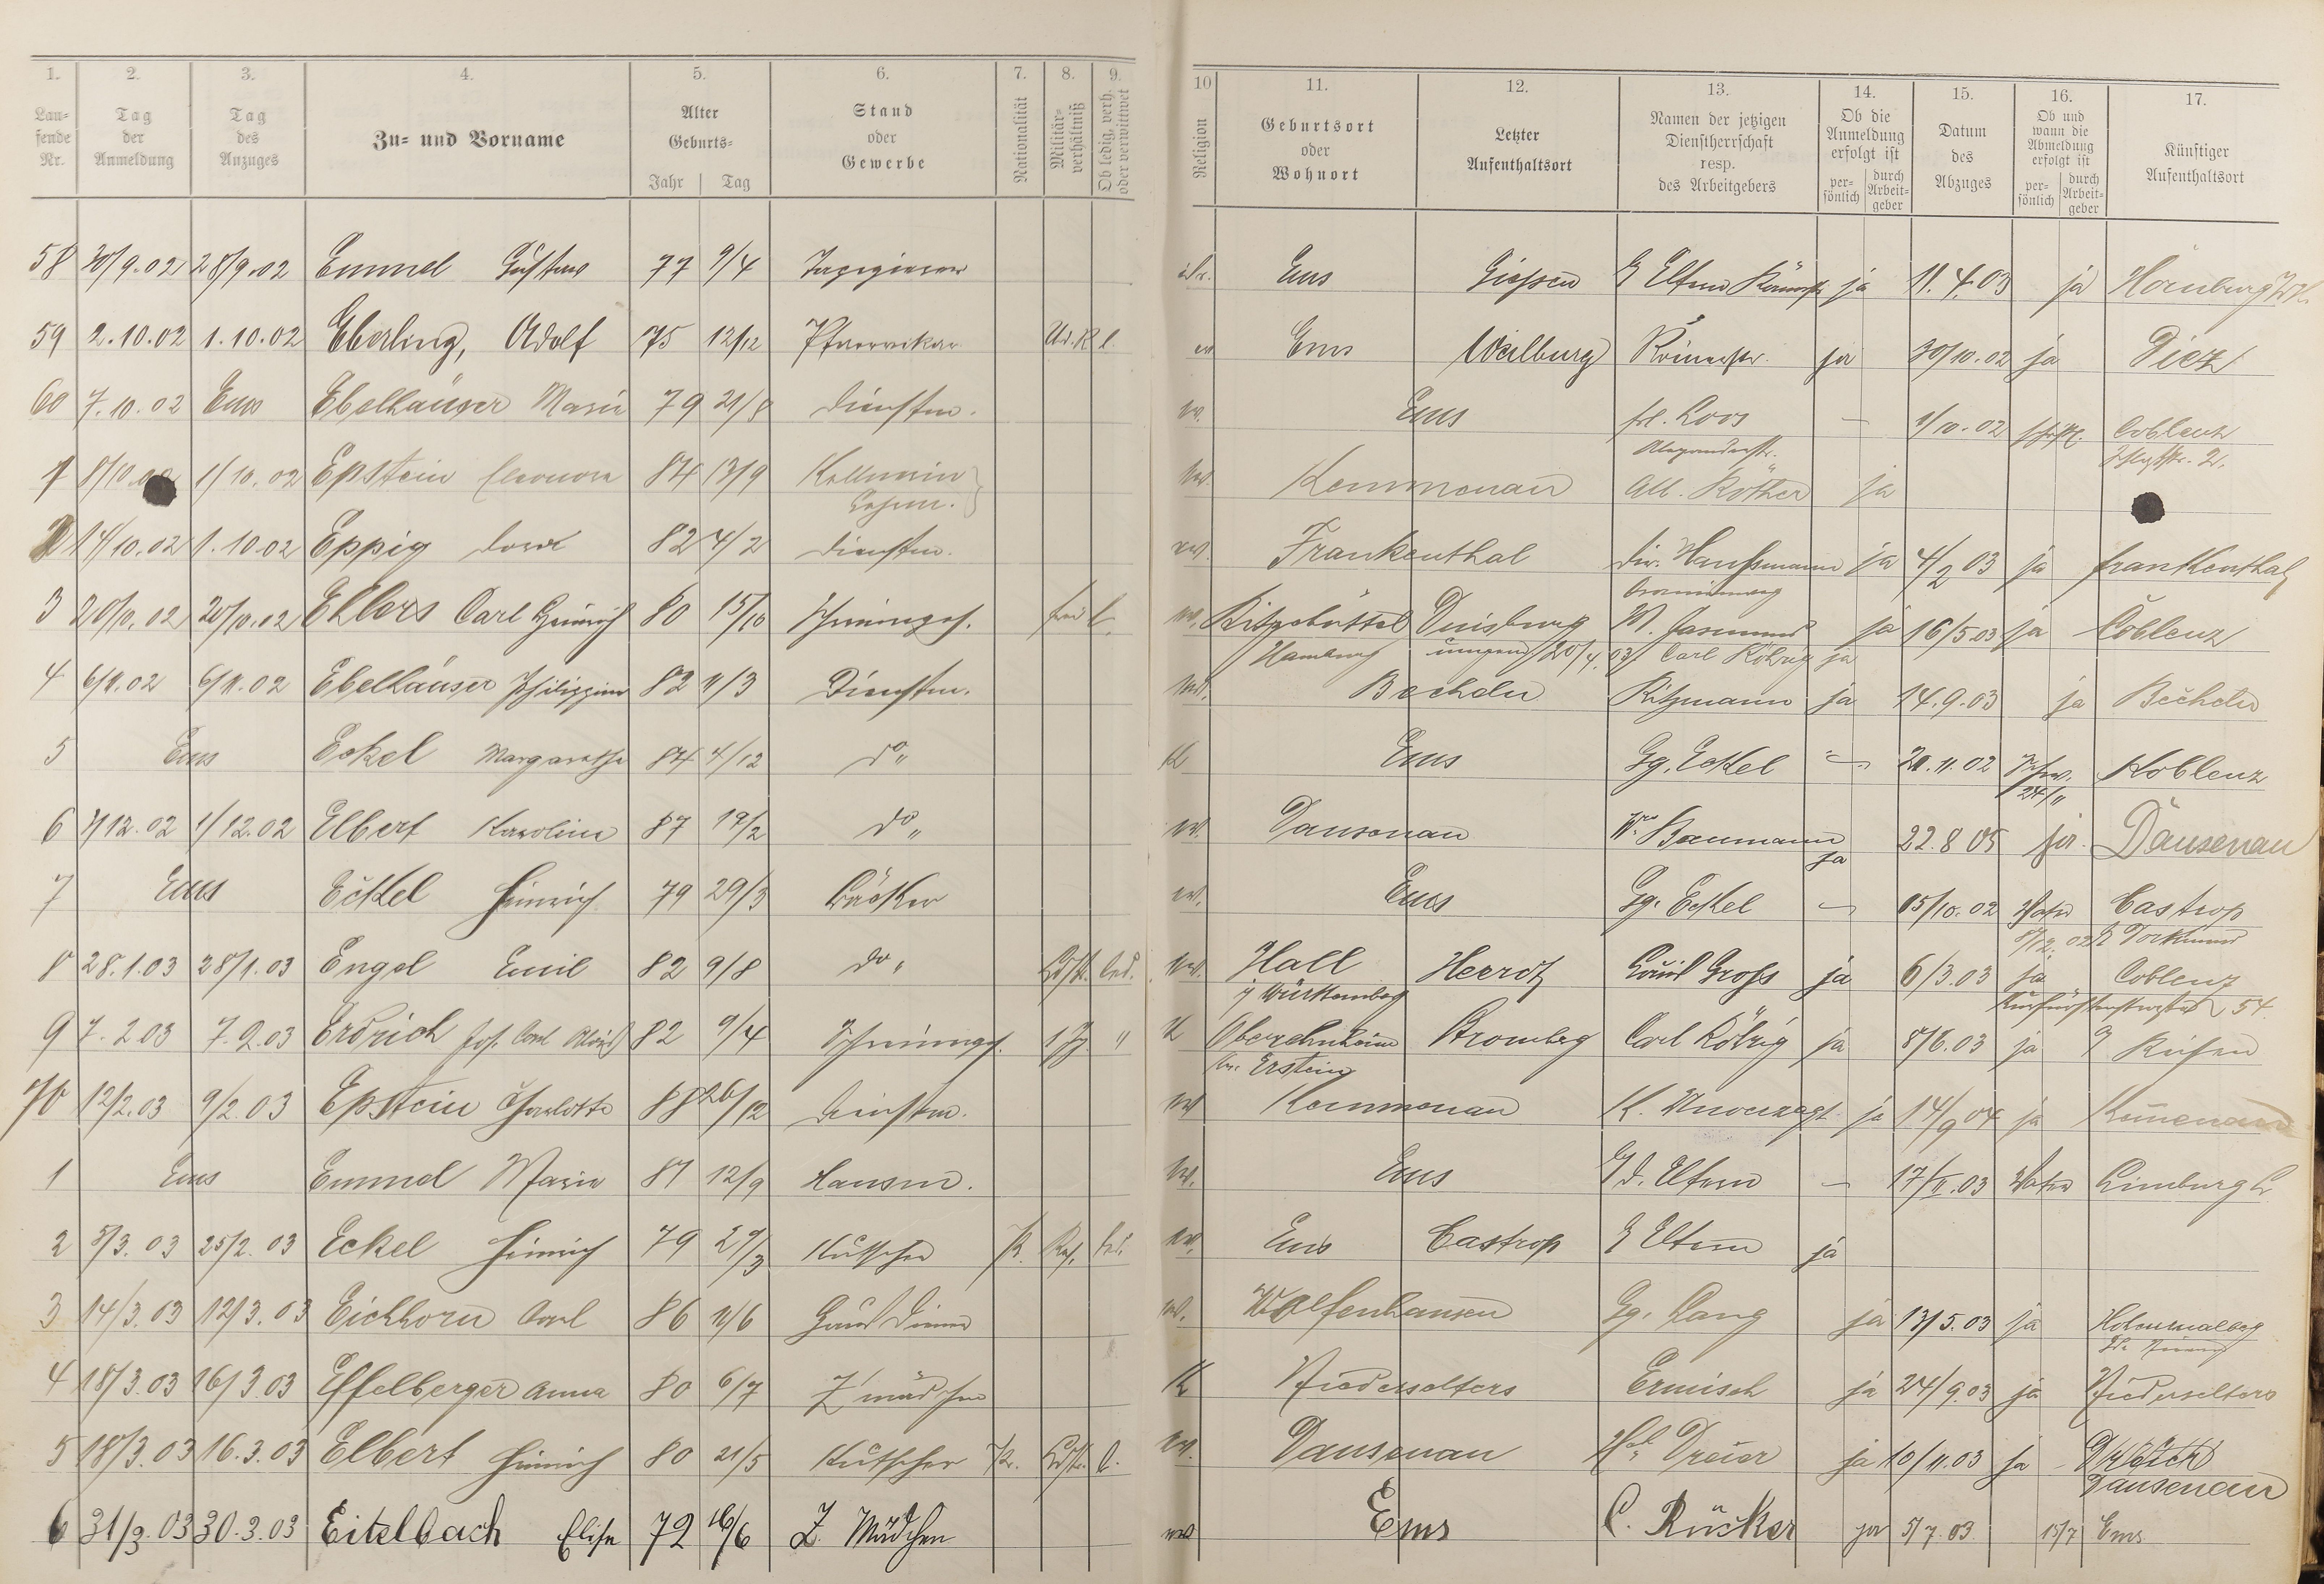 1. 2. 3. 4. 5. 6. 7. 8. 9. 10 11. 12. 13. 14. 15. 16. 17.
Lau-
fende
Nr.
Tag
der
Anmeldung
Tag
des
Anzuges
Zu- und Vorname
Alter
Geburts-
Jahr Tag
Stand
oder
Gewerbe
Nationalität
Militär-
verhältniß
Ob ledig, verh.
oder verwittwet
Religion
Geburtsort
oder
Wohnort
Letzter
Aufenthaltsort
Namen der jetzigen
Dienstherrschaft
resp.
des Arbeitgebers
Ob die
Anmeldung
erfolgt ist
per-
sönlich
durch
Arbeit-
geber
Datum
des
Abzuges
Ob und
wann die
Abmeldung
erfolgt ist
per-
sönlich
durch
Arbeit-
geber
Künftiger
Aufenthaltsort
58 30/9.02 28/9.02 Emmel Gustav 77 9/4 Tapezierer Ems Giessen Eltern ja 11.4.03 ja
59 2.10.02 1.10.02 Eberling, Adolf 75 12/12 Pfarrvikar l. ev Ems Weilburg Römerstr. ja 30/10.02 ja Diez
60 7.10.02 Ems Ebelhäuser Marie 79 21/8 Dienstm. ev. Ems frl. Loos — 1/10.02 Coblenz
Alexanderstr.
1 8/10.02 1/10.02 Epstein Eleonore 84 13/9 Kellnerin ev. Kemmenau Alb. Röther ja
2 14/10.02 1.10.02 Eppig 82 4/2 Dienstm. ev. Frankenthal Dir. Haussmann ja 4/2 03 ja Frankenthal
3 20/10.02 20/10.02 Ehlers Carl Heinrich 80 15/10 Schreinerges. l. ev. Ritzebüttel Duisburg ja 16/5.03 ja Coblenz
Hamburg 20/4.03 Carl Röhrig ja
4 6/11.02 6/11.02 Ebelhäuser Philippine 82 11/3 Dienstm. ev. Becheln Ritzmann ja 14.9.03 ja Becheln
5 Ems Eckel Margarethe 84 4/12 do " K Ems Gg. Eckel — 20.11.02 Koblenz
24/11
6 1/12.02 1/12.02 Elbert Karoline 87 19/2 do " ev. Dausenau Baumann ja 22.8 05 ja Dausenau
7 Ems Eckel Heinrich 79 29/3 Bäcker ev. Ems Gg. Eckel — 15/10.02 Castrop
8/12.02 Dortmund
8 28.1.03 28/1.03 Engel Emil 82 9/8 do " led. ev. Hall Heerdt Emil Gross ja 6/3.03 ja Coblenz
Württemberg 54
9 7.2.03 7.2.03 Erdrich Jos. Carl Alois 82 9/4 Schreinerges. " K Oberehnheim Bromberg Carl Röhrig ja 8/6.03 ja Reisen
Erstein
70 12/2.03 9/2.03 Epstein Charlotte 88 26/12 Dienstm. ev Kemmenau ja 14/9 04 ja Kemenau
1 Ems Emmel Marie 87 12/9 Hausm. ev. Ems d. Eltern — 17/II.03 Limburg
2 3/3.03 25/2.03 Eckel Heinrich 79 29/3 Kutscher led. ev. Ems Castrop Eltern ja
3 14/3.03 12/3.03 Eichhorn Carl 86 11/6 Hausdiener ev. Wolfenhausen Gg. Lang ja 13/5.03 ja
4 18/3.03 16/3.03 Effelberger Anna 80 6/7 Z'mädchen K Niederselters Ermisch ja 24/9.03 ja Niederselters
5 18/3.03 16.3.03 Elbert Heinrich 80 21/5 Kutscher l. ev. Dausenau ja 10/11.03 ja
Dausenau
6 31/3.03 30.3.03 Eitelbach Elise 72 16/6 Z. Mädchen ev Ems C. Rücker ja 5/7.03 15/7 Ems